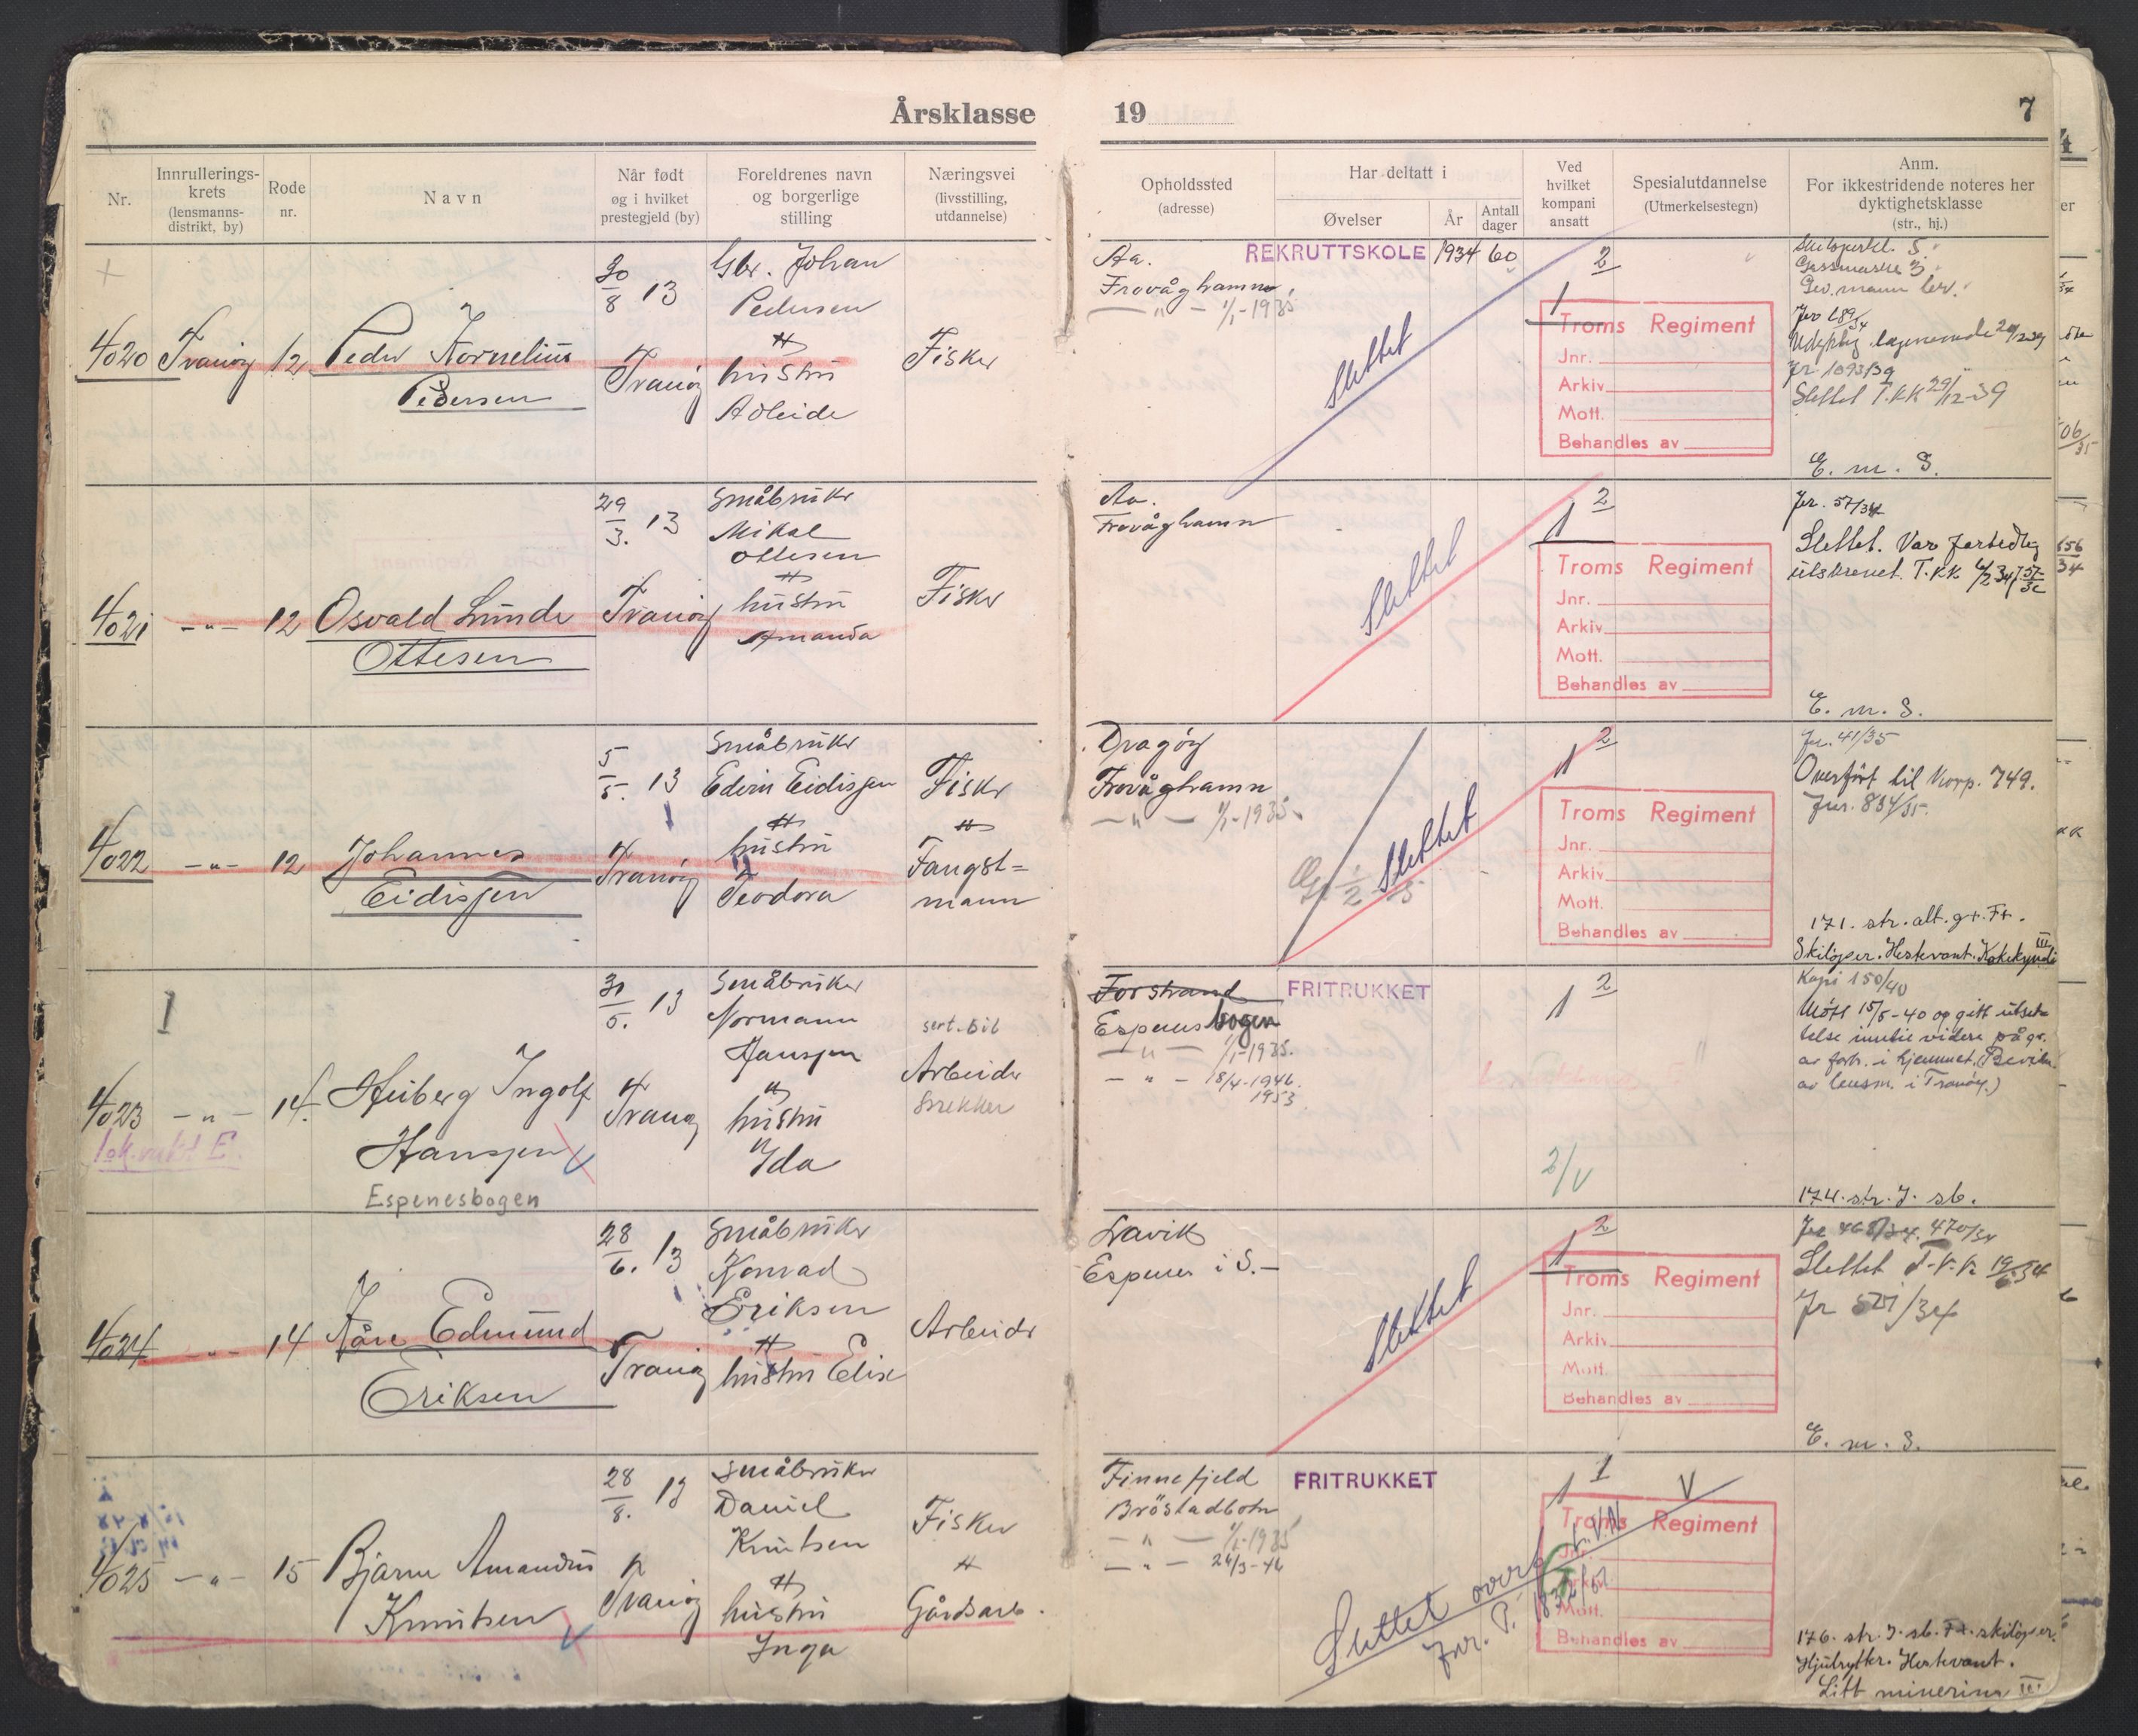 Årsklasse 19 7
Nr.
Innrullerings-
krets
(lensmanns-
distrikt, by)
Rode
nr.
Navn
Når født
og i hvilket
prestegjeld (by)
Foreldrenes navn
og borgerlige
stilling
Næringsvei
(livsstilling,
utdannelse)
Opholdssted
(adresse)
Har deltatt i
Øvelser
År
Antall
dager
Ved
hvilket
kompani
ansatt
Spesialutdannelse
(Utmerkelsestegn)
Anm.
For ikkestridende noteres her
dyktighetsklasse
(str., hj.)
4020 Tranøy 12 Peder Kornelius
Pedersen
30/8 13
Tranøy
Gbr. Johan
Pedersen
hustru
Adleide
Fisker
Aa.
Frovåghamn
— " — 1/1-1935
REKRUTTSKOLE 1934 60
2
1
Slettet
Troms Regiment
Jnr.
Arkiv
Mott.
Behandles av
Gassmaske 3
Jnr 189/34
Jr 1093/39
Slettet T.KK 29/12-39
4021 -"- 12 Osvald Lunde
Ottesen
29/3. 13
Tranøy
Småbruker
Mikal
Ottesen
hustru
Amanda
Fisker
Aa.
Frovåghamn
2
1
Slettet
Troms Regiment
Jnr.
Arkiv
Mott.
Behandles av
E. m. S.
Jnr. 57/34
Slettet. Var forbedlig
utskrevet. T.KK
E. m. S.
4022 -"- 12 Johannes
Eidissen
5/5. 13
Tranøy
Småbruker
Edvin Eidissen
hustru
Teodora
Fisker
Fangst=
mann
Dragøy
Frovåghamn
— " — 1/1-1935
2
1
Slettet
Troms Regiment
Jnr.
Arkiv
Mott.
Behandles av
Jnr. 41/35
Overført til Korp. 749.
Jnr. 834/35.
171. str. alt. g+. F+.
Skiløper. Hestevant. Kokekyndi III
4023 -"- 14. Heiberg Ingolf
Hanssen
Espenesbogen
lok.vakt E.
30/5. 13
Tranøy
Småbruker
Normann
Hanssen
hustru
Ida
sert. bil
Arbeider
Snekker
Forstrand
Espenesbogen
— " — 1/1-1935.
— " — 18/4-1946.
1953
FRITRUKKET
2
1
2/V
Kopi 150/40
Møtt 15/5-40 og gitt utset=
telse inntil videre på gr.
av forh. i hjemmet. (Bevitn.
av lensm. i Tranøy.)
174. str. I. sb.
4024. -"- 14 Kåre Edmund
Eriksen
28/6. 13
Tranøy
Småbruker
Konrad
Eriksen
hustru Elise
Arbeider
Lavik
Espenes i S.-
2
1
Slettet
Troms Regiment
Jnr.
Arkiv
Mott.
Behandles av
Jr 468/34. 470/34
Slettet T.K.K. 19/6-34
Jr 521/34
E. m. S.
4025 -"- 15 Bjarne Amandus
Knutsen
28/8. 13
Tranøy
Småbruker
Daniel
Knutsen
hustru
Inga
Fisker
Gårdsarb.
Finnefjeld
Brøstadbotn
— " — 1/1-1935
— " — 26/3-46
FRITRUKKET
1
1
V
Slettet overf. t. VN
Jnr. P.
Troms Regiment
Jnr.
Arkiv
Mott.
Behandles av
176. str. I. sb. F+. skiløper.
Hjulrytter. Hestevant.
Litt minering III